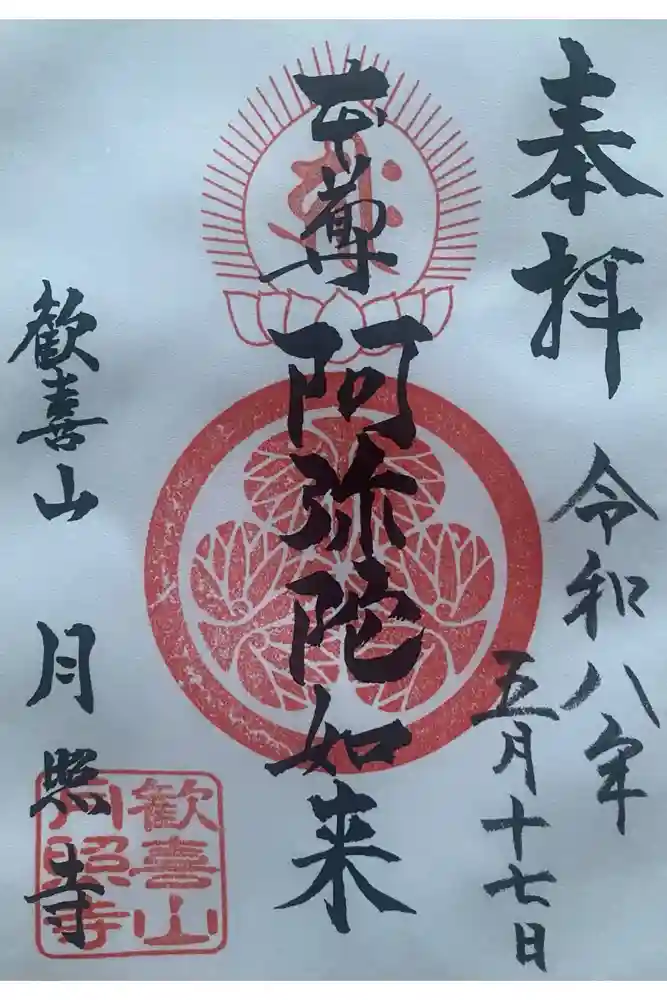 奉拝
令和八年
五月十七日
本尊
阿弥陀如来
歓喜山
月照寺
歓喜山
月照寺